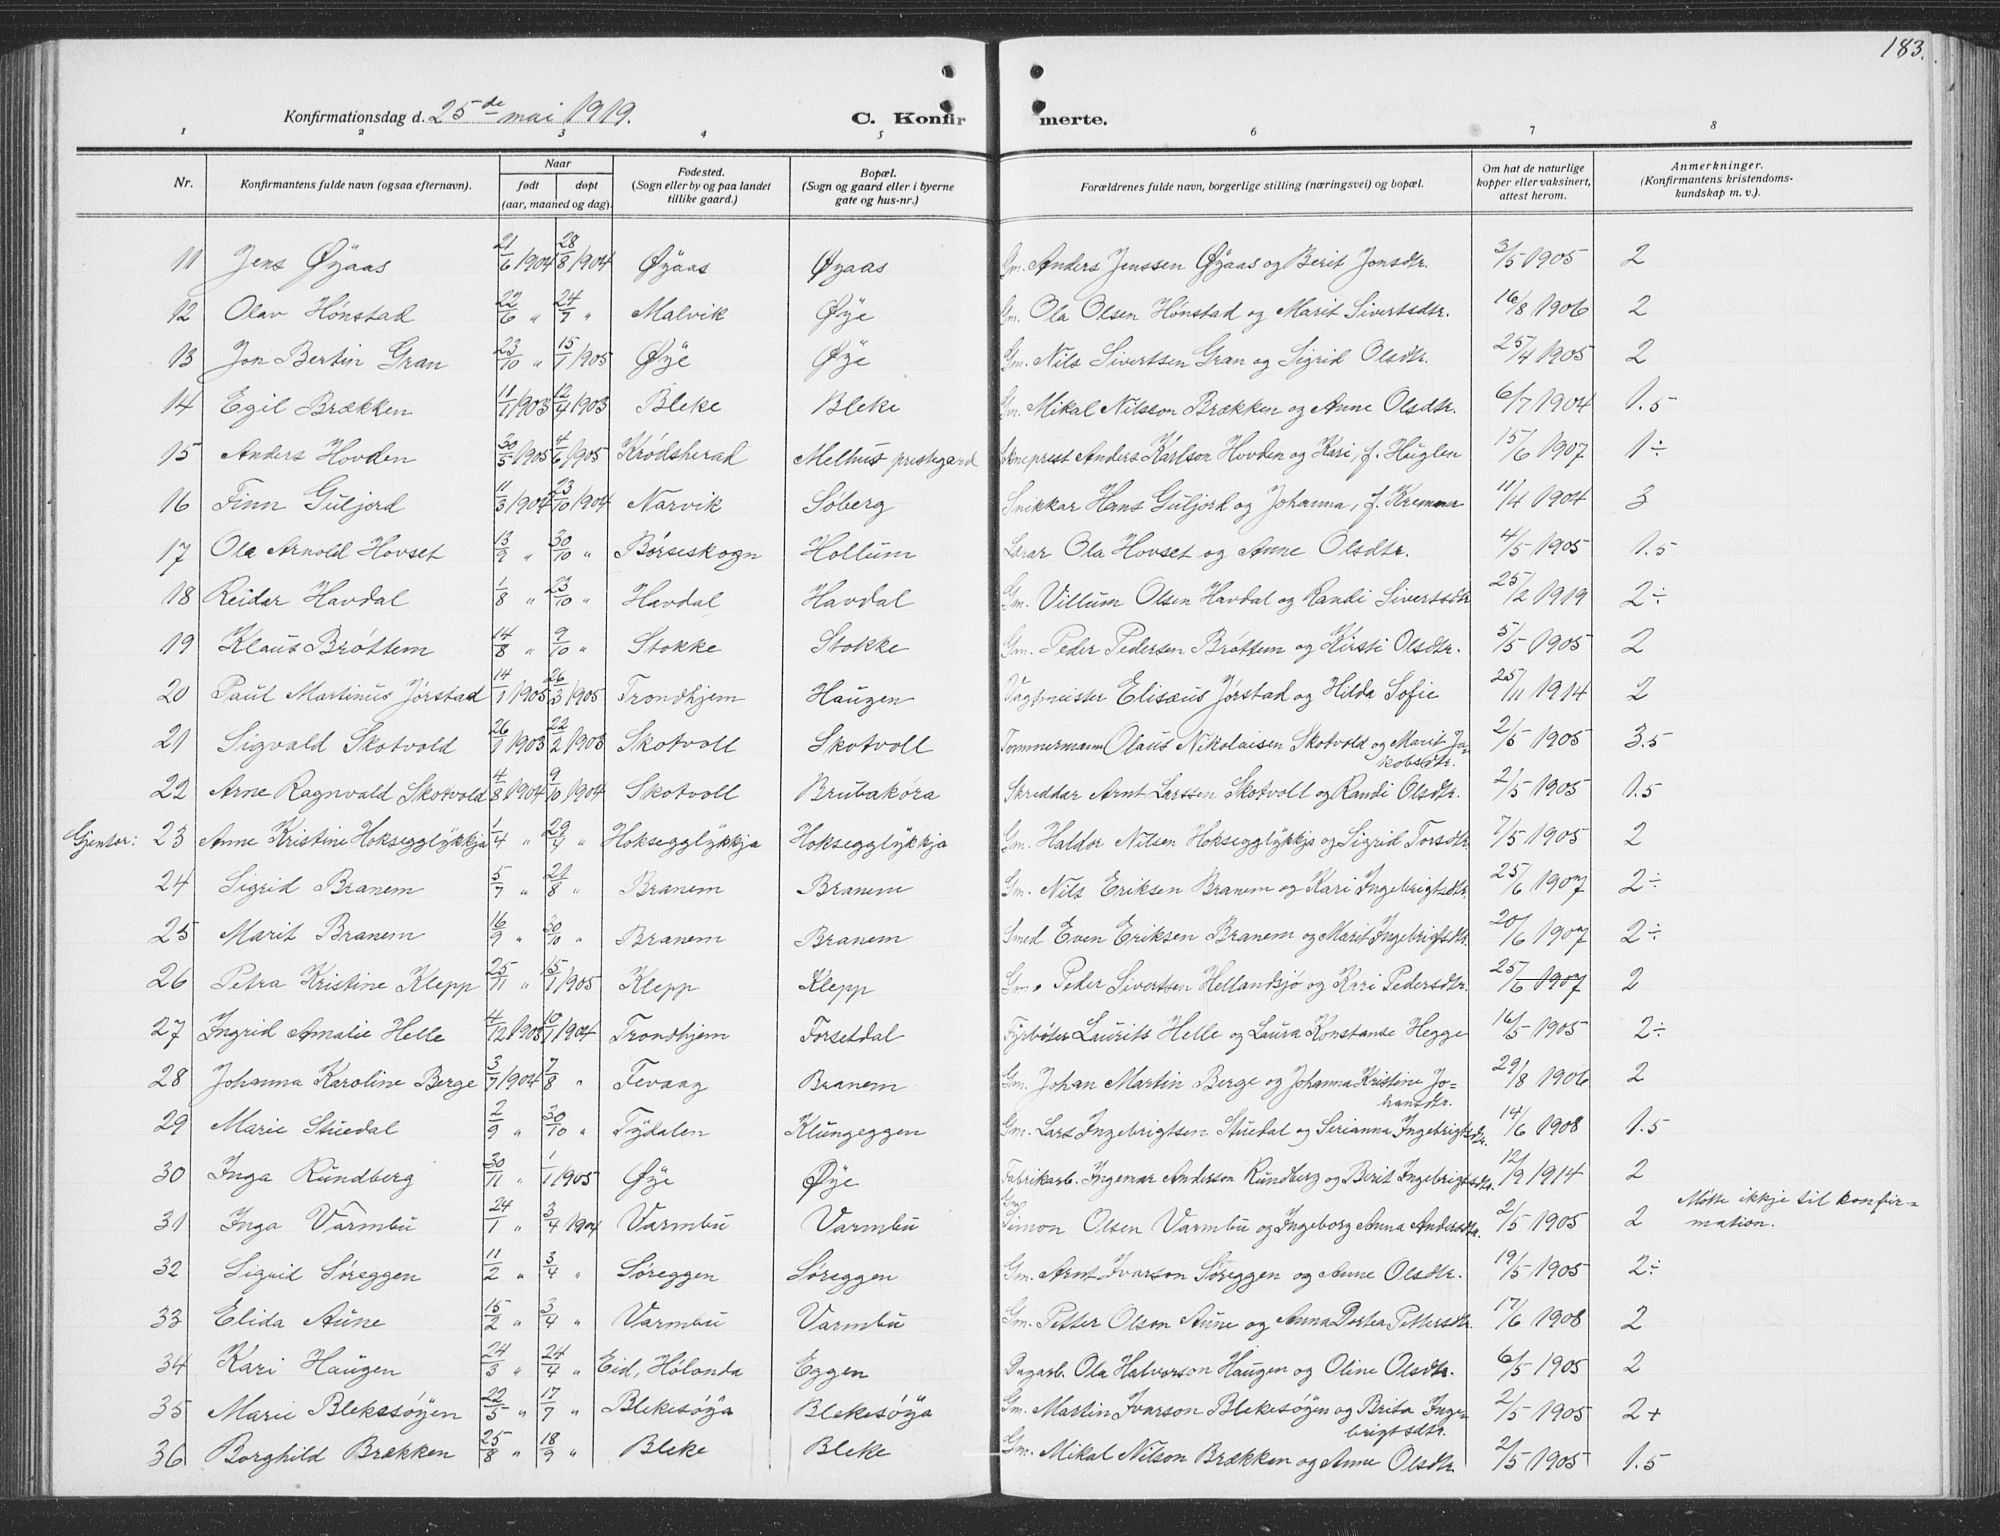 183.
Konfirmationsdag d. 25de mai 1919. C. Konfirmerte.
1 2 3 4 5 6 7 8
Nr. Konfirmantens fulde navn (ogsaa efternavn). Naar født døpt (aar, maaned og dag). Fødested. (Sogn eller by og paa landet tillike gaard.) Bopæl. (Sogn og gaard eller i byerne gate og hus-nr.) Forældrenes fulde navn, borgerlige stilling (næringsvei) og bopæl. Om hat de naturlige kopper eller vaksinert, attest herom. Anmerkninger. (Konfirmantens kristendoms-kundskap m. v.).
11 Jens Øyaas 21/6 1904 28/8 1904 Øyaas Øyaas Gm. Anders Jenssen Øyaas og Berit Jonsdtr. 3/5 1905 2
12 Olav Hønstad 22/6 " 24/7 " Malvik Øye Gm. Ola Olsen Hønstad og Marit Sivertsdtr. 16/8 1906 2
13 Jon Bertin Gran 23/10 " 15/1 1905 Øye Øye Gm. Nils Sivertsen Gran og Sigrid Olsdtr. 25/4 1905 2
14 Egil Brækken 11/1 1903 12/4 1903 Bleke Bleke Gm. Mikal Nilsson Brækken og Anne Olsdtr. 6/7 1904 1.5
15 Anders Hovden 30/5 1905 4/6 1905 Krødsherad Melhus prestegard Sokneprest Anders Karlson Hovden og Kari, f. Huglen 15/6 1907 1÷
16 Finn Guljord 11/3 1904 23/10 1904 Narvik Søberg Snikkar Hans Guljord og Johanna, f. Kremmer 11/4 1904 3
17 Ola Arnold Hovset 13/9 " 30/10 " Børseskogn Hollum Lærar Ola Hovset og Anne Olsdtr. 4/5 1905 1.5
18 Reidar Havdal 1/8 " 23/10 " Havdal Havdal Gm. Villum Olsen Havdal og Randi Sivertsdtr 25/2 1919 2÷
19 Klaus Brøttem 14/8 " 9/10 " Stokke Stokke Gm. Peder Pedersen Brøttem og Kirsti Olsdtr. 5/5 1905 2
20 Paul Martinus Jørstad 14/1 1905 26/3 1905 Trondhjem Haugen Vagtmeister Elisæus Jørstad og Hilda Sofie 25/11 1914 2
21 Sigvald Skotvold 26/1 1903 22/2 1903 Skotvoll Skotvoll Tømmermann Olaus Nikolaisen Skotvold og Marit Ja-
kobsdtr. 2/5 1905 3.5
22 Arne Ragnvald Skotvold 4/8 1904 9/10 1904 Skotvoll Brubakøra Skreddar Arnt Larssen Skotvoll og Randi Olsdtr. 2/5 1905 1.5
Gjentor: 23 Anne Kristine Hoksegglykkja 1/4 " 29/4 " Hoksegglykkja Hoksegglykkja Gm. Haldor Nilsen Hoksegglykkja og Sigrid Torsdtr 7/5 1905 2
24 Sigrid Branem 5/7 " 21/8 " Branem Branem Gm. Nils Eriksen Branem og Kari Ingebrigtsdtr. 25/6 1907 2÷
25 Marit Branem 16/9 " 30/10 " Branem Branem Smed Even Eriksen Branem og Marit Ingebrigtsdtr. 20/6 1907 2÷
26 Petra Kristine Klepp 25/11 " 15/1 1905 Klepp Klepp Gm. Peder Sivertsen Hellandsjø og Kari Pedersdtr. 25/6 1907 2
27 Ingrid Amalie Helle 4/12 1903 10/1 1904 Trondhjem Forsetdal Fyrbøter Laurits Helle og Laura Konstanse Hegge 16/5 1905 2÷
28 Johanna Karoline Berge 3/7 1904 7/8 " Tevaag Branem Gm. Johan Martin Berge og Johanna Kristine Jo-
hansdtr. 29/8 1906 2
29 Marie Stuedal 2/9 " 30/10 " Tydalen Klungeggen Gm. Lars Ingebrigtsen Stuedal og Serianna Ingebrigtsdtr. 14/6 1908 1.5
30 Inga Rundberg 30/11 " 1/1 1905 Øye Øye Fabrikarb. Ingemar Anderson Rundberg og Berit Ingebrigtsdtr. 12/9 1914 2
31 Inga Varmbu 24/1 " 3/4 1904 Varmbu Varmbu Gm. Simon Olsen Varmbu og Ingeborg Anna Andersdtr. 2/5 1905 2 Møtte ikkje til konfir-
mation.
32 Sigrid Søreggen 11/2 " 3/4 " Søreggen Søreggen Gm. Arnt Ivarson Søreggen og Anne Olsdtr. 19/5 1905 2÷
33 Elida Aune 15/2 " 3/4 " Varmbu Varmbu Gm. Petter Olson Aune og Anna Dortea Pettersdtr. 17/6 1908 2
34 Kari Haugen 24/3 " 24/4 " Eid, Hølonda Eggen Dagarb. Ola Halvorson Haugen og Oline Olsdtr. 6/5 1905 2
35 Marie Blekesøyen 22/5 " 17/7 " Blekesøya Blekesøya Gm. Martin Ivarson Blekesøyen og Brita Inge-
brigtsdtr. 2/5 1905 2+
36 Borghild Brækken 25/8 " 18/9 " Bleke Bleke Gm. Mikal Nilson Brækken og Anne Olsdtr. 2/5 1905 1.5